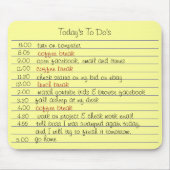 Today's To Do's
8:00 turn on computer
8:05 coffee break
9:00 scan facebook, email and games
11:00 coffee break
11:20 check status on my bid on ebay
12:00 lunch break
2:00 watch youtube vids & browse Facebook
3:20 fall asleep at my desk
4:00 coffee break
4:30 work on project & check work email
4:55 tell boss I was swamped again today,
and I will try to finish it tomorrow.
5:00 go home